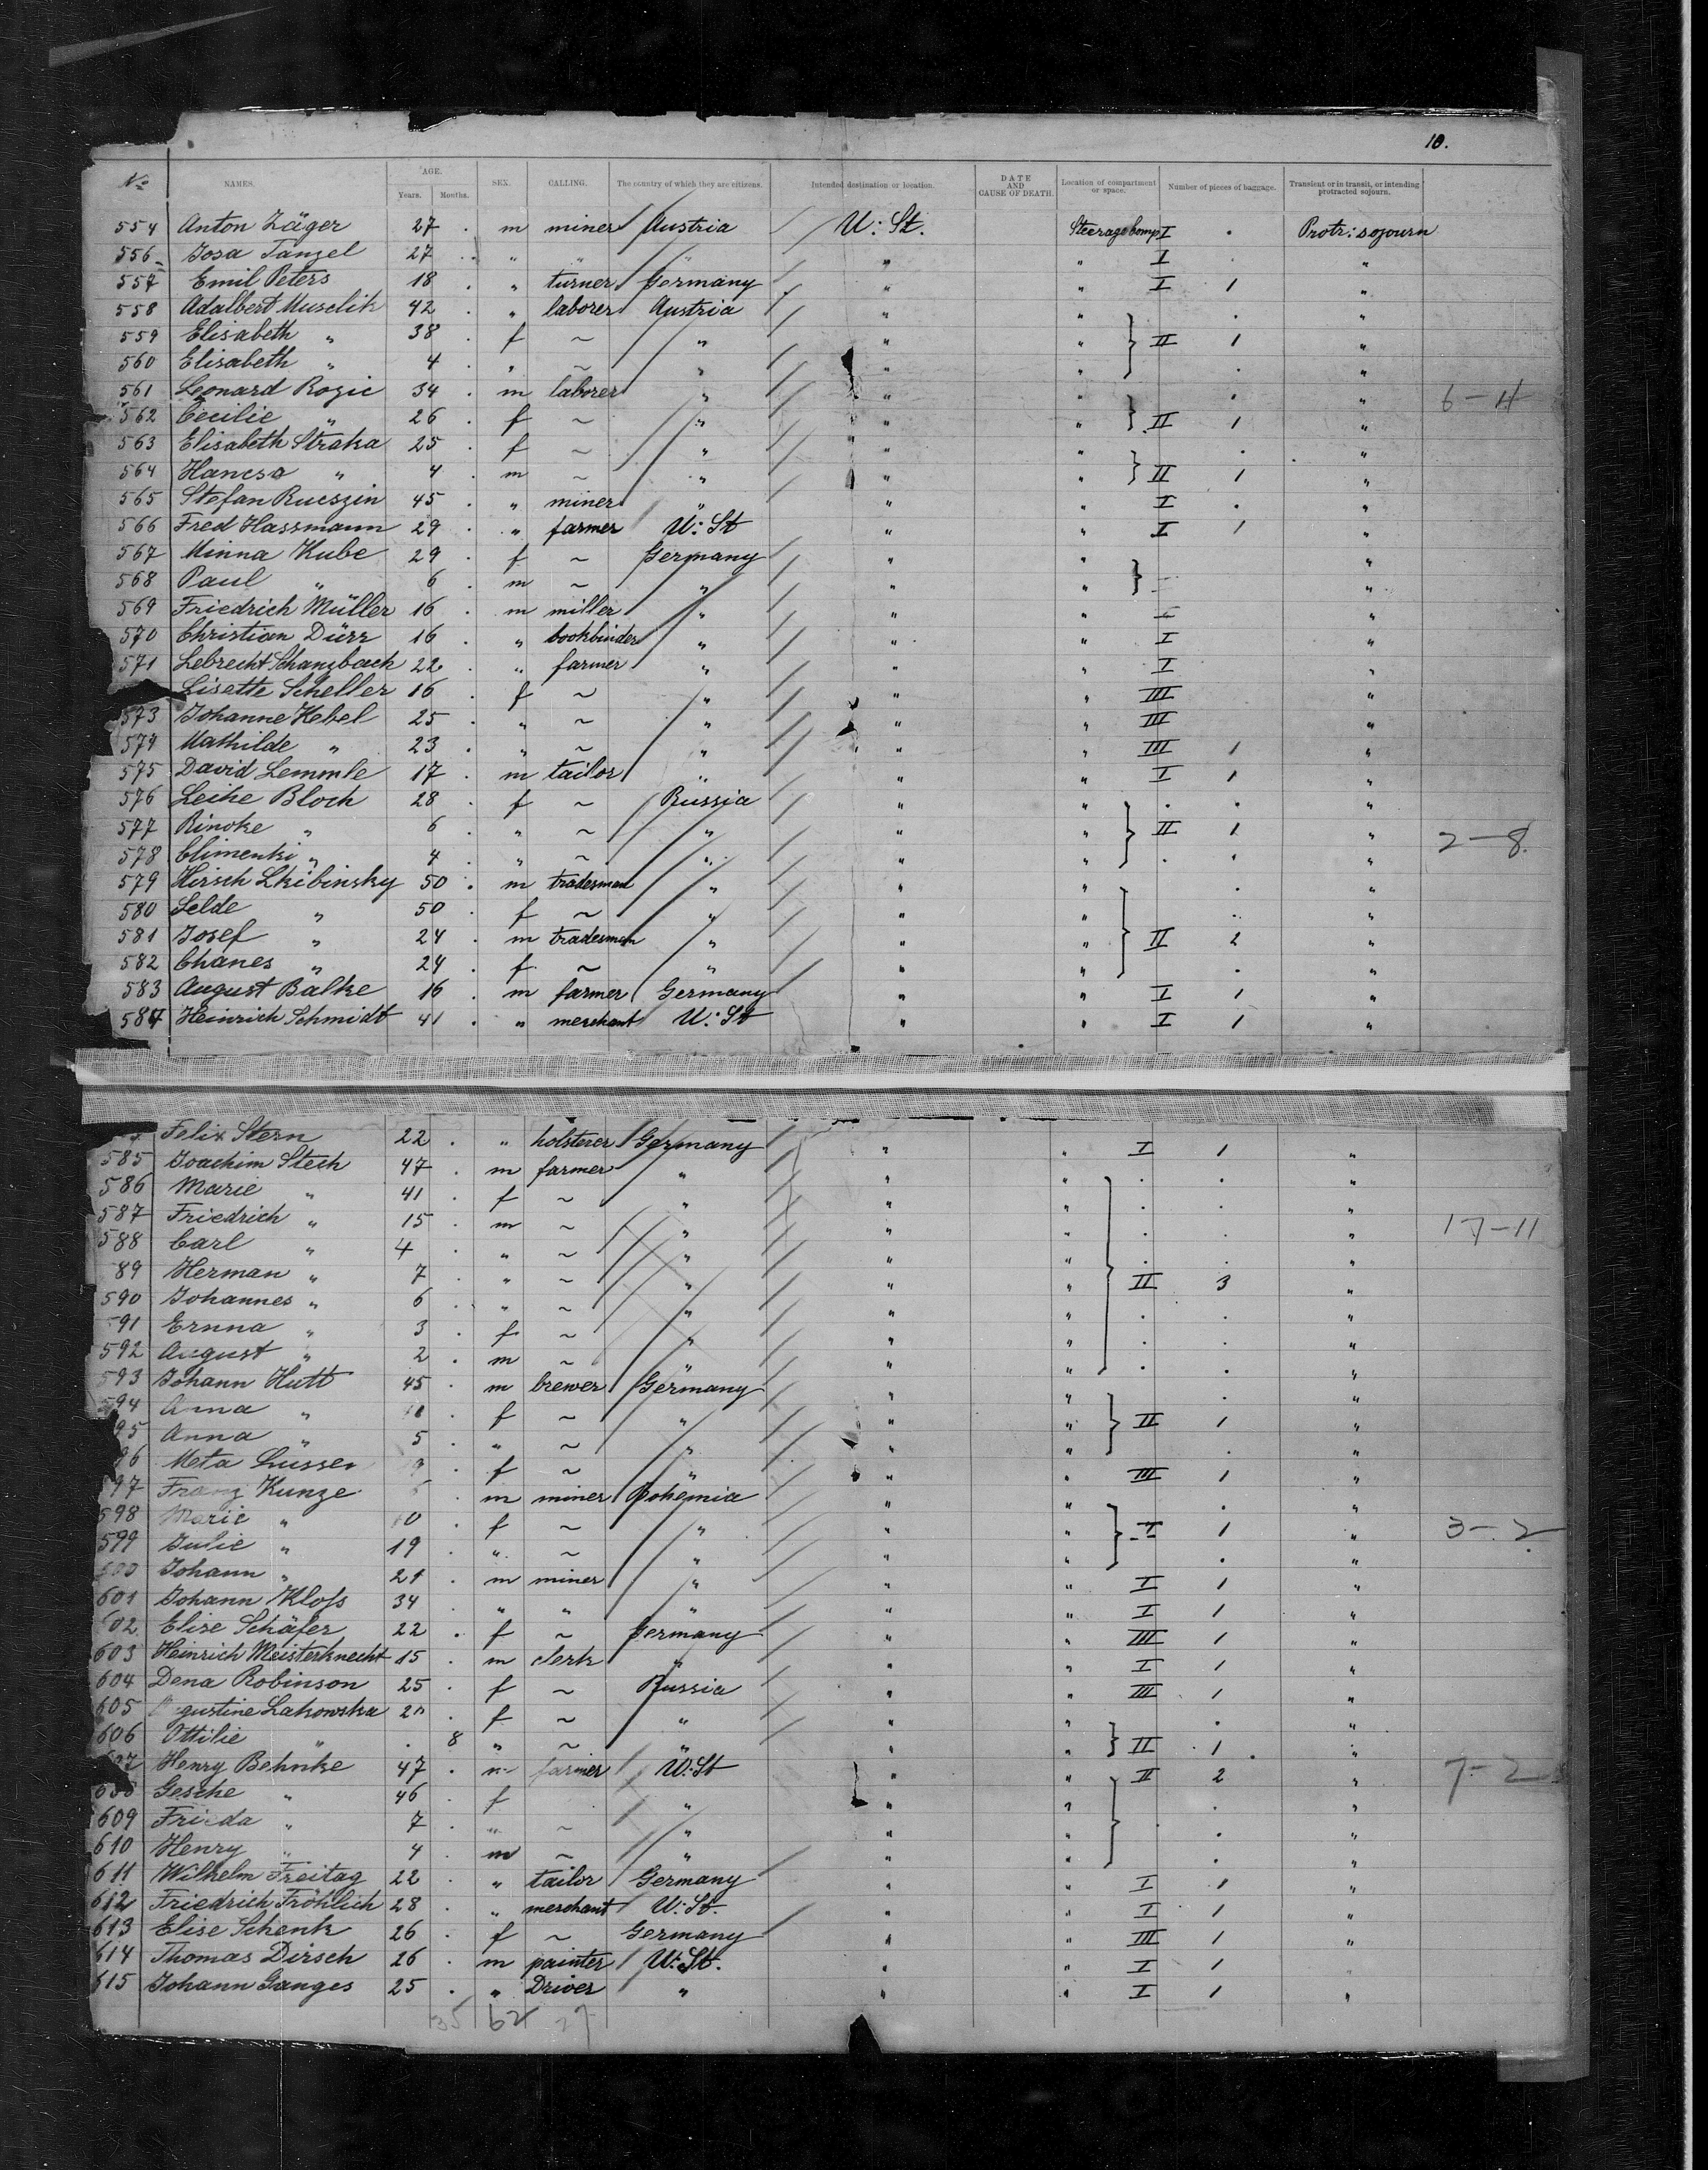 10.
No NAMES. AGE. Years. Months. SEX. CALLING. The country of which they are citizens. Intended destination or location. DATE AND CAUSE OF DEATH. Location of compartment or space. Number of pieces of baggage. Transient or in transit, or intending protracted sojourn.
554 Anton Zäger 27 . m miner Austria U: St. Steerage Comp I . Protr: sojourn
556 Josa Tanzel 27 . " " " " " I . "
557 Emil Peters 18 . " turner Germany " " I 1 "
558 Adalbert Muselik 42 . " laborer Austria " " . "
559 Elisabeth " 38 . f ~ " " " II 1 "
560 Elisabeth " 4 . " ~ " " " . "
561 Leonard Rozic 34 . m laborer " " " . " 6-4
562 Cecilie " 26 . f ~ " " " II 1 "
563 Elisabeth Straka 25 . f ~ " " " . "
564 Hancso " 4 . m ~ " " " II 1 "
565 Stefan Rueszin 45 . " miner " " " I . "
566 Fred Hassmann 29 . " farmer U: St " " I 1 "
567 Minna Kube 29 . f ~ Germany " " "
568 Paul " 6 . m ~ " " " "
569 Friedrich Müller 16 . m miller " " " I "
570 Christian Dürr 16 . " bookbinder " " " I "
571 Lebrecht Schanzbach 22 . " farmer " " " I "
Lisette Scheller 16 . f ~ " " " III "
573 Johanne Kebel 25 . " ~ " " " III "
574 Mathilde " 23 . " ~ " " " III 1 "
575 David Lemmle 17 . m tailor " " " I 1 "
576 Leike Bloch 28 . f ~ Russia " " . . "
577 Rinoke " 6 . " ~ " " " II 1 " 2-8
578 Climenki " 4 . " ~ " " " . . "
579 Hirsch Lkibinsky 50 . m tradesman " " " . "
580 Selde " 50 . f ~ " " " . "
581 Josef " 24 . m tradesman " " " II 2 "
582 Chanes " 24 . f ~ " " " . "
583 August Balke 16 . m farmer Germany " " I 1 "
584 Heinrich Schmidt 41 . " merchant U: St " " I 1 "
Felix Stern 22 . " holsterer Germany " " I 1 "
585 Joachim Stech 47 . m farmer " " " . . "
586 Marie " 41 . f ~ " " " . . "
587 Friedrich " 15 . m ~ " " " . . " 17-11
588 Carl " 4 . " ~ " " " . . "
89 Herman " 7 . " ~ " " " II 3 "
590 Johannes " 6 . " ~ " " " . . "
591 Ernna " 3 . f ~ " " " . . "
592 August " 2 . m ~ " " " . . "
593 Johann Hutt 45 . m brewer Germany " " . "
594 Anna " . f ~ " " " II 1 "
95 Anna " 5 . " ~ " " " . "
96 Meta Lüssen . f ~ " " " III 1 "
597 Franz Kunze . m miner Bohemia " " . "
598 Marie " . f ~ " " " II 1 " 3-2
599 Julie " 19 . " ~ " " " . "
600 Johann " 21 . m miner " " " I 1 "
601 Johann Kloss 34 . " " " " " I 1 "
602 Elise Schäfer 22 . f ~ Germany " " III 1 "
603 Heinrich Meisterknecht 15 . m clerk " " " I 1 "
604 Dena Robinson 25 . f ~ Russia " " III 1 "
605 Augustine Lakowska . f ~ " " " . "
606 Ottilie " . 8 " ~ " " " II 1 "
607 Henry Behnke 47 . m farmer U: St " " II 2 " 7-2
608 Gesche " 46 . f " " " . "
609 Frieda " 7 . " ~ " " " . "
610 Henry " 4 . m ~ " " " . "
611 Wilhelm Freitag 22 . " tailor Germany " " I 1 "
612 Friedrich Fröhlich 28 . " merchant U: St. " " I 1 "
613 Elise Schenk 26 . f ~ Germany " " III 1 "
614 Thomas Dirsch 26 . m painter U: St. " " I 1
615 Johann Ganges 25 . " Driver " " " I 1 "
35 62 27